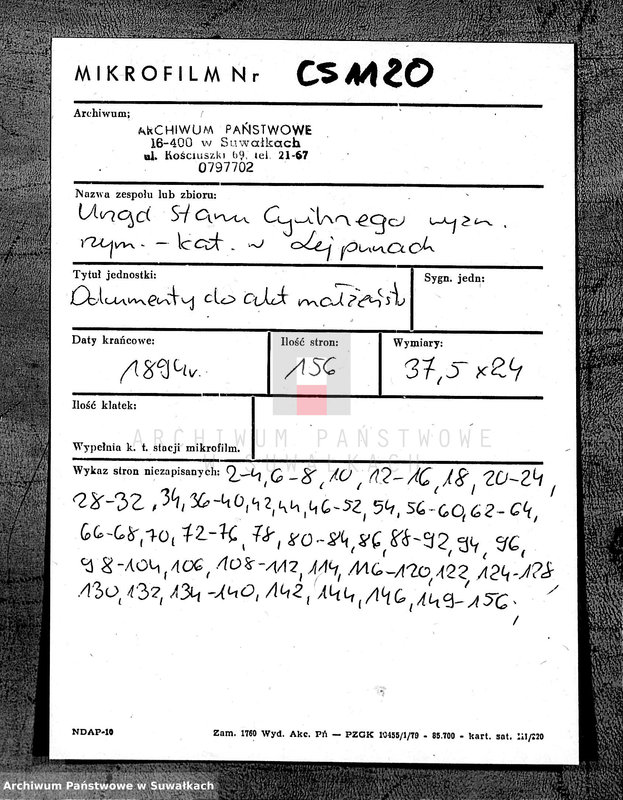 MIKROFILM Nr CSM20
Archiwum;
ARCHIWUM PAŃSTWOWE
16-400 w Suwałkach
ul. Kościuszki 69, tel. 21-67
0797702
Nazwa zespołu lub zbioru:
Urząd Stanu Cywilnego wyzn.
rzym. - kat. w Lejpunach
Tytuł jednostki:
Sygn. jedn:
Dokumenty do akt małżeństw
Daty krańcowe:
Ilość stron:
Wymiary:
1894r.
156
37,5 x 24
Ilość klatek:
ARCHIWUM PAŃSTWOWE
W SUWAŁKACH
Wypełnia k. t. stacji mikrofilm.
Wykaz stron niezapisanych: 2-4, 6-8, 10, 12-16, 18, 20-24,
28-32, 34, 36-40, 42, 44, 46-52, 54, 56-60, 62-64,
66-68, 70, 72-76, 78, 80-84, 86, 88-92, 94, 96,
98-104, 106, 108-112, 114, 116-120, 122, 124-128,
130, 132, 134-140, 142, 144, 146, 149-156;
NDAP-10
Zam. 1760 Wyd. Akc. Pń — PZGK 10455/1/79 - 85.700 - kart. sat. III/220
Archiwum Państwowe w Suwałkach